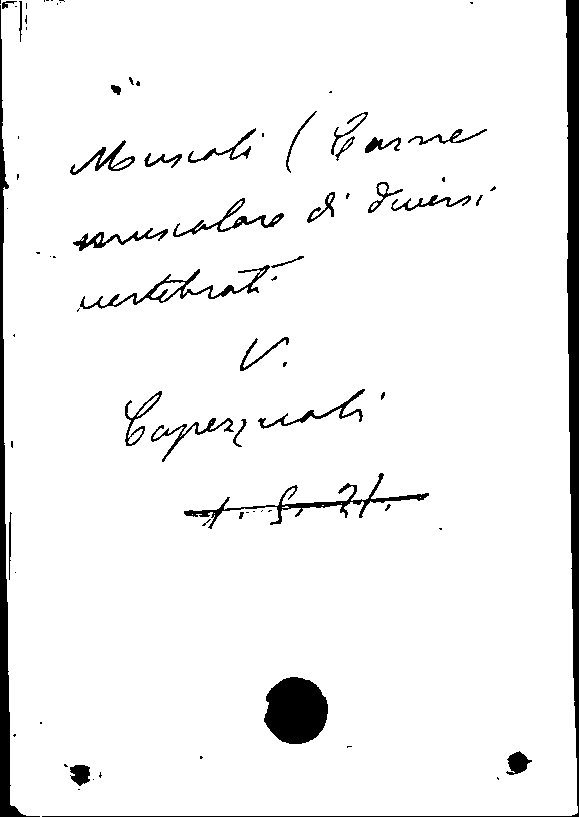 Muscoli ( Carne
muscolare di diversi
vertebrati
V.
Capezzuoli
1. S. 21.